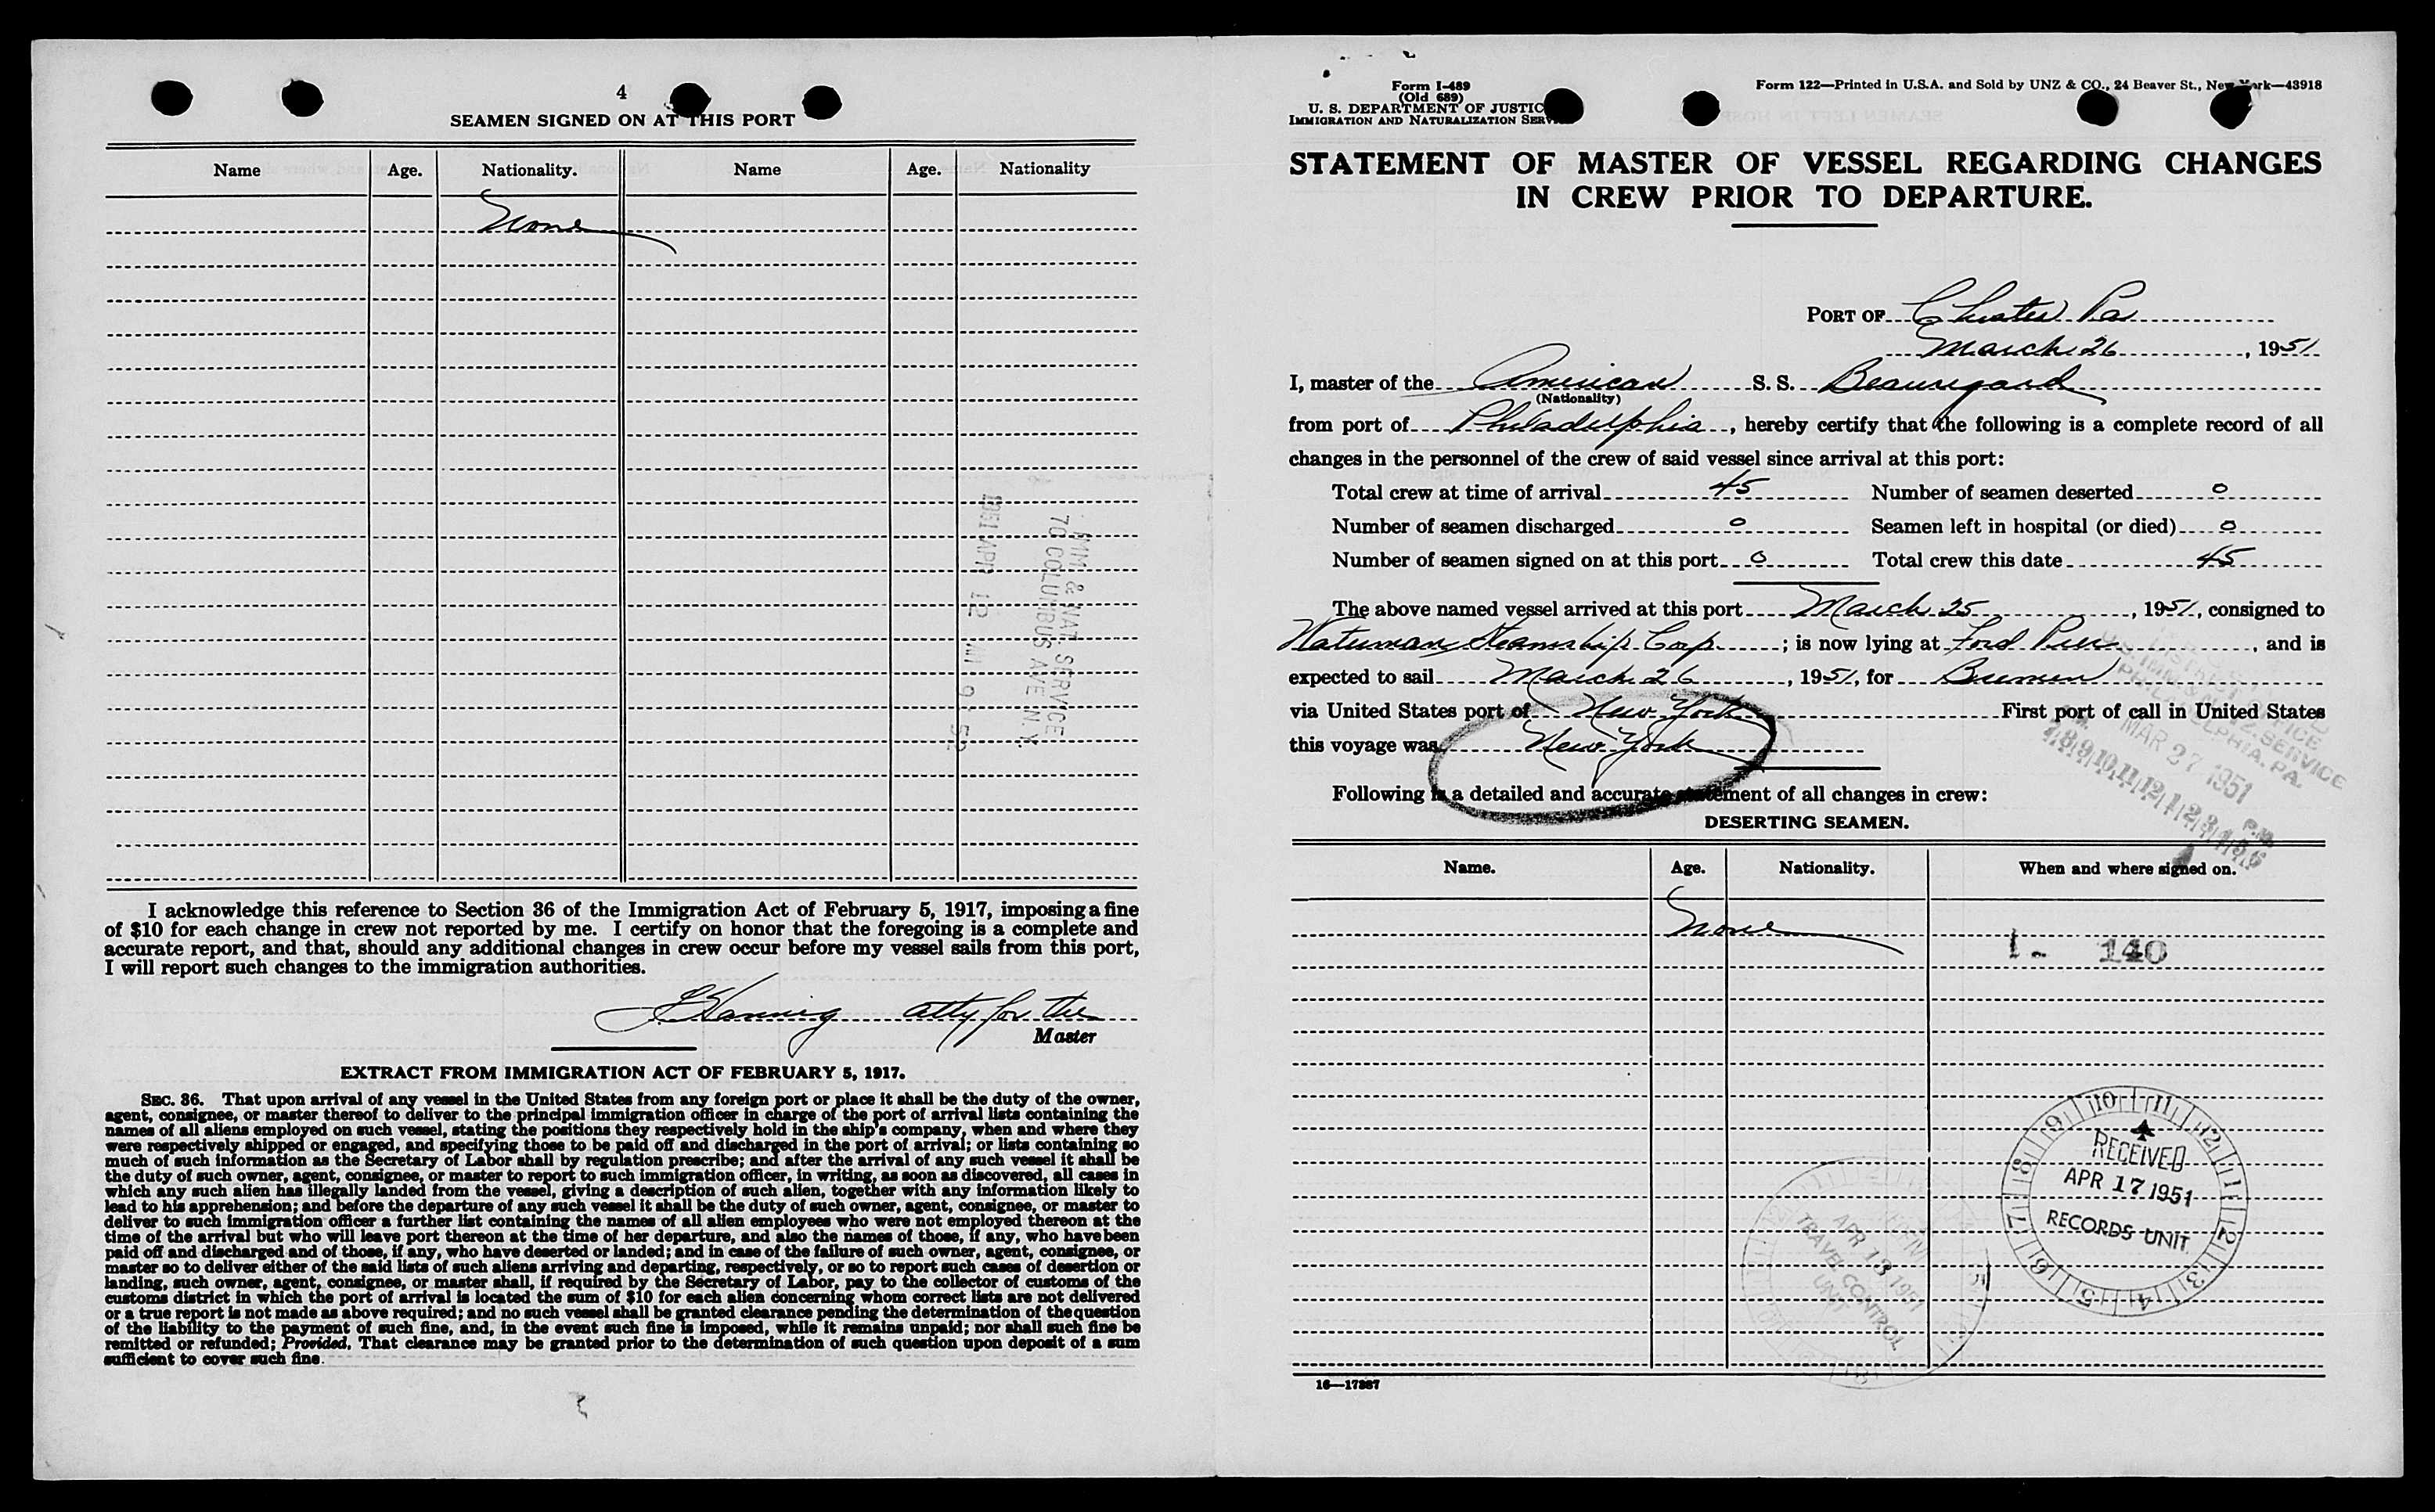 4
SEAMEN SIGNED ON AT THIS PORT
Name Age. Nationality. Name Age. Nationality
None
IMM & NAT. SERVICE
70 COLUMBUS AVE N.Y.
1951 APR 12 AM 9 52
I acknowledge this reference to Section 36 of the Immigration Act of February 5, 1917, imposing a fine
of $10 for each change in crew not reported by me. I certify on honor that the foregoing is a complete and
accurate report, and that, should any additional changes in crew occur before my vessel sails from this port,
I will report such changes to the immigration authorities.
atty for the
Master
EXTRACT FROM IMMIGRATION ACT OF FEBRUARY 5, 1917.
SEC. 36. That upon arrival of any vessel in the United States from any foreign port or place it shall be the duty of the owner,
agent, consignee, or master thereof to deliver to the principal immigration officer in charge of the port of arrival lists containing the
names of all aliens employed on such vessel, stating the positions they respectively hold in the ship's company, when and where they
were respectively shipped or engaged, and specifying those to be paid off and discharged in the port of arrival; or lists containing so
much of such information as the Secretary of Labor shall by regulation prescribe; and after the arrival of any such vessel it shall be
the duty of such owner, agent, consignee, or master to report to such immigration officer, in writing, as soon as discovered, all cases in
which any such alien has illegally landed from the vessel, giving a description of such alien, together with any information likely to
lead to his apprehension; and before the departure of any such vessel it shall be the duty of such owner, agent, consignee, or master to
deliver to such immigration officer a further list containing the names of all alien employees who were not employed thereon at the
time of the arrival but who will leave port thereon at the time of her departure, and also the names of those, if any, who have been
paid off and discharged and of those, if any, who have deserted or landed; and in case of the failure of such owner, agent, consignee, or
master so to deliver either of the said lists of such aliens arriving and departing, respectively, or so to report such cases of desertion or
landing, such owner, agent, consignee, or master shall, if required by the Secretary of Labor, pay to the collector of customs of the
customs district in which the port of arrival is located the sum of $10 for each alien concerning whom correct lists are not delivered
or a true report is not made as above required; and no such vessel shall be granted clearance pending the determination of the question
of the liability to the payment of such fine, and, in the event such fine is imposed, while it remains unpaid; nor shall such fine be
remitted or refunded; Provided, That clearance may be granted prior to the determination of such question upon deposit of a sum
sufficient to cover such fine.
Form I-489
(Old 689)
U. S. DEPARTMENT OF JUSTIC
IMMIGRATION AND NATURALIZATION SERV
Form 122—Printed in U.S.A. and Sold by UNZ & CO., 24 Beaver St., New York—43918
STATEMENT OF MASTER OF VESSEL REGARDING CHANGES
IN CREW PRIOR TO DEPARTURE.
PORT OF Chester Pa
March 26, 1951
I, master of the American S. S. Beauregard
(Nationality)
from port of Philadelphia, hereby certify that the following is a complete record of all
changes in the personnel of the crew of said vessel since arrival at this port:
Total crew at time of arrival 45 Number of seamen deserted 0
Number of seamen discharged 0 Seamen left in hospital (or died) 0
Number of seamen signed on at this port 0 Total crew this date 45
The above named vessel arrived at this port March 25, 1951, consigned to
Waterman Steamship Corp.; is now lying at Ford Pier, and is
expected to sail March 26, 1951, for Bremen
via United States port of New York First port of call in United States
this voyage was New York
DISTRICT OFFICE
U.S. IMM. & NATZ. SERVICE
PHILADELPHIA, PA.
MAR 27 1951
7 8 9 10 11 12 1 2 3 4 5 6 P.M.
Following is a detailed and accurate statement of all changes in crew:
DESERTING SEAMEN.
Name. Age. Nationality. When and where signed on.
None
1 - 140
RECEIVED
APR 17 1951
RECORDS UNIT
APR 13 1951
TRAVEL CONTROL
UNIT
16—17387